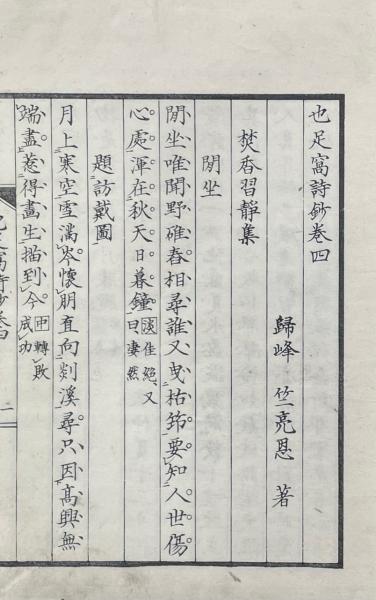 也足窩詩鈔卷四
歸峰 竺亮恩 著
焚香習靜集
閒坐
閒坐唯聞野碓舂相尋誰又曳枯筇要知人世傷
心處渾在秋天日暮鐘淡佳絕又曰凄然
題訪戴圖
月上寒空雪滿岑懷朋直向剡溪尋只因高興無
端盡惹得畫生描到今轉敗成功